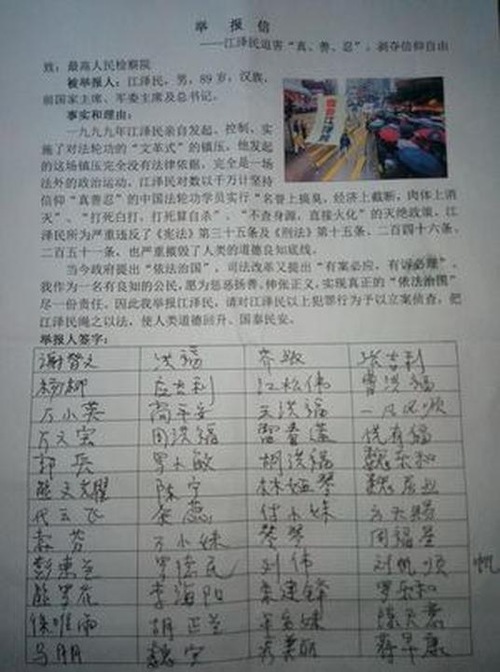 举 报 信
——江泽民迫害“真、善、忍”,剥夺信仰自由
致:最高人民检察院
被举报人:江泽民,男,89岁,汉族,
前国家主席、军委主席及总书记。
事实和理由:
一九九九年江泽民亲自发起、控制、实
施了对法轮功的“文革式”的镇压,他发起
的这场镇压完全没有法律依据,完全是一场
法外的政治运动,江泽民对数以千万计坚持
信仰“真善忍”的中国法轮功学员实行“名誉上搞臭,经济上截断,肉体上消
灭”、“打死白打,打死算自杀”、“不查身源,直接火化”的灭绝政策。江
泽民所为严重违反了《宪法》第三十五条及《刑法》第十五条、二百四十六条、
二百五十一条,也严重摧毁了人类的道德良知底线。
当今政府提出“依法治国”,司法改革又提出“有案必应,有诉必理”,
我作为一名有良知的公民,愿为惩恶扬善、伸张正义,实现真正的“依法治国”
尽一份责任。因此我举报江泽民,请对江泽民以上犯罪行为予以立案侦查,把
江泽民绳之以法,使人类道德回升、国泰民安。
举报人签字:
洪福 张吉利
杨柳 应吉利 江松伟 曹洪福
万小英 尚平安 王洪福 一凡风顺
万文宏 周洪福 优有福
郭兵 罗小敏 胡洪福 魏东和
陈宇 林娅琴
代云飞 付小妹
万小妹 琴琴 周福星
彭东兰 罗德民 刘伟 刘帆顺 帆
李海阳 朱建锋 罗乐和
徐唯雨 胡正兰
马朋 魏宝 蒋早康